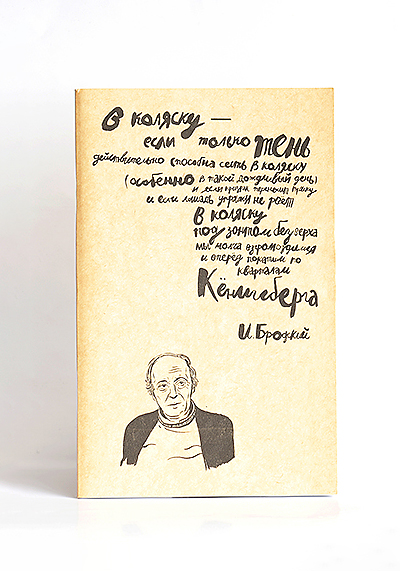 В коляску —
если только тень
действительно способна сесть в коляску
(особенно в такой дождливый день)
и если призрак переносит тряску
и если лошадь упряжи не рвёт
в коляску
под зонтом без верха
мы молча взгромоздимся
и вперёд покатим по
кварталам
Кёнигсберга
И. Бродский